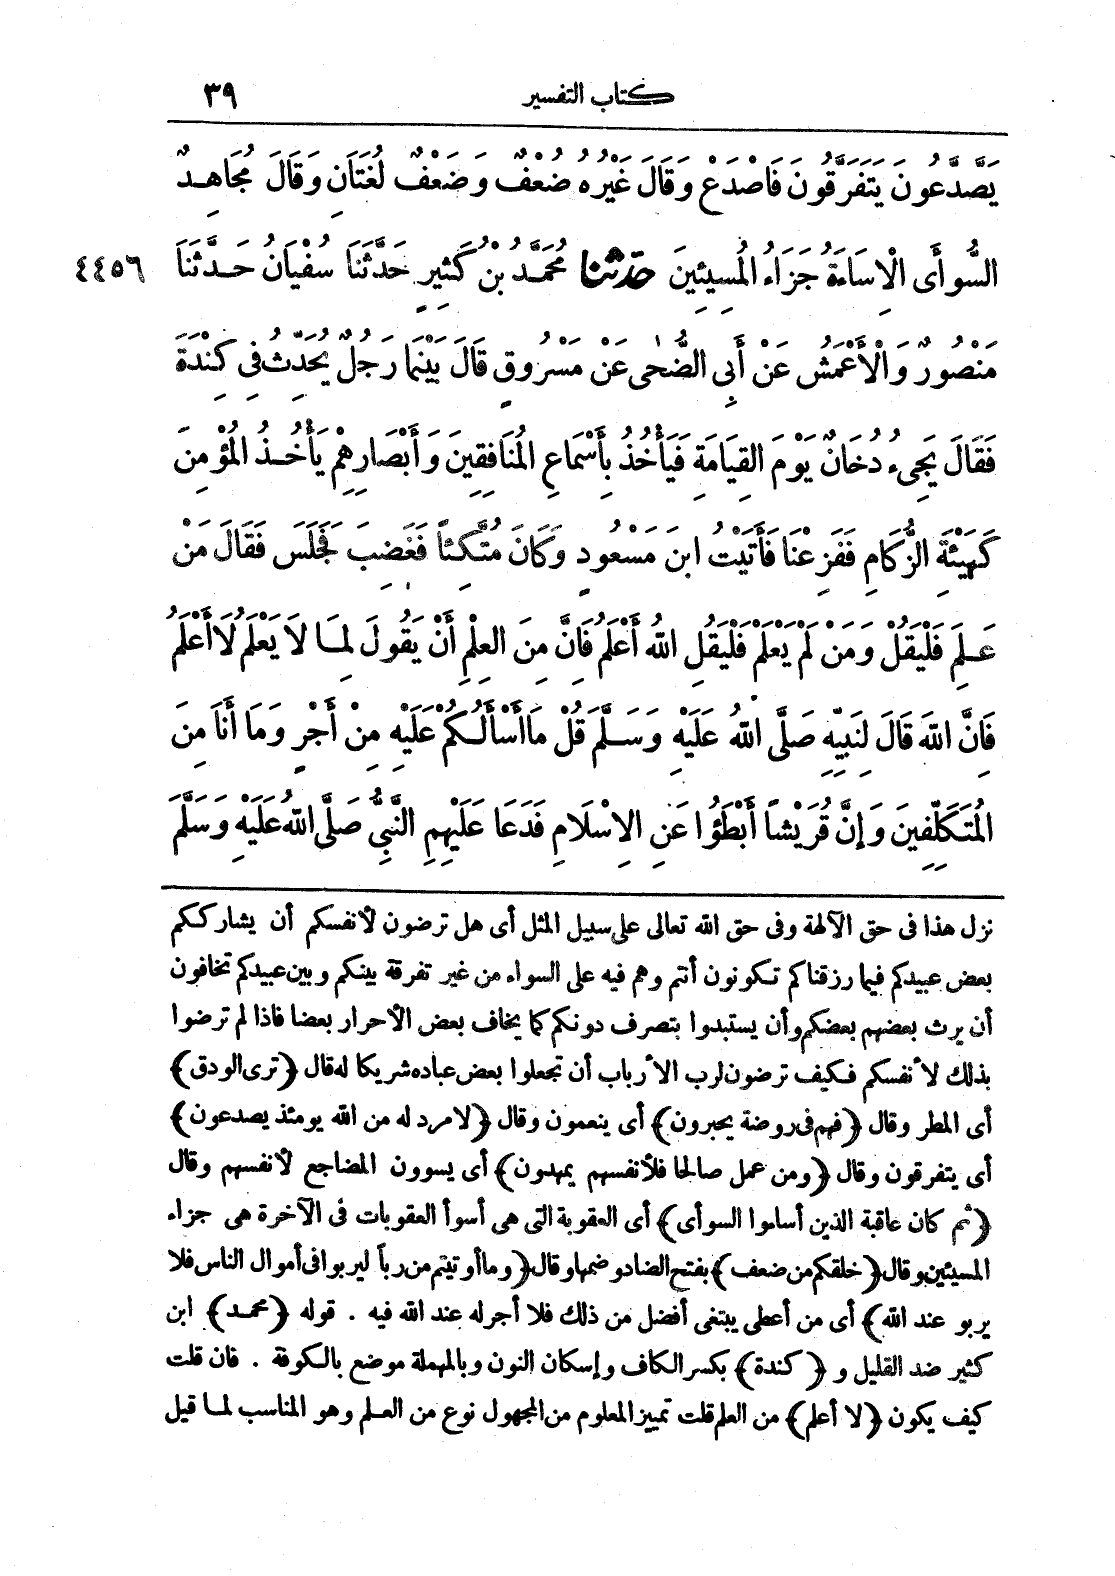 كتاب التفسير ٣٩
يَصَّدَّعُونَ يَتَفَرَّقُونَ فَاصْدَعْ وَقَالَ غَيْرُهُ ضُعْفٌ وَضَعْفٌ لُغَتَانِ وَقَالَ مُجَاهِدٌ
السُّوأَى الْإِسَاءَةُ جَزَاءُ الْمُسِيئِينَ حَدَّثَنَا مُحَمَّدُ بْنُ كَثِيرٍ حَدَّثَنَا سُفْيَانُ حَدَّثَنَا ٤٤٥٦
مَنْصُورٌ وَالْأَعْمَشُ عَنْ أَبِي الضُّحَى عَنْ مَسْرُوقٍ قَالَ بَيْنَمَا رَجُلٌ يُحَدِّثُ فِي كِنْدَةَ
فَقَالَ يَجِيءُ دُخَانٌ يَوْمَ القِيَامَةِ فَيَأْخُذُ بِأَسْمَاعِ المُنَافِقِينَ وَأَبْصَارِهِمْ يَأْخُذُ المُؤْمِنَ
كَهَيْئَةِ الزُّكَامِ فَفَزِعْنَا فَأَتَيْتُ ابنَ مَسْعُودٍ وَكَانَ مُتَّكِئاً فَغَضِبَ فَجَلَسَ فَقَالَ مَنْ
عَلِمَ فَلْيَقُلْ وَمَنْ لَمْ يَعْلَمْ فَلْيَقُلِ اللهُ أَعْلَمُ فَانَّ مِنَ العِلْمِ أَنْ يَقُولَ لِمَا لَا يَعْلَمُ لَا أَعْلَمُ
فَانَّ اللهَ قَالَ لِنَبِيِّهِ صَلَّى اللهُ عَلَيْهِ وَسَلَّمَ قُلْ مَا أَسْأَلُكُمْ عَلَيْهِ مِنْ أَجْرٍ وَمَا أَنَا مِنَ
المُتَكَلِّفِينَ وَإِنَّ قُرَيْشاً أَبْطَؤُا عَنِ الإسْلَامِ فَدَعَا عَلَيْهِمِ النَّبِيُّ صَلَّى اللهُ عَلَيْهِ وَسَلَّمَ
نزل هذا فى حق الآلهة وفى حق الله تعالى على سبيل المثل أى هل ترضون لأنفسكم أن يشارككم
بعض عبيدكم فيما رزقناكم تكونون أنتم وهم فيه على السواء من غير تفرقة بينكم وبين عبيدكم تخافون
أن يرث بعضهم بعضكم وأن يستبدوا بتصرف دونكم كما يخاف بعض الأحرار بعضا فاذا لم ترضوا
بذلك لأنفسكم فكيف ترضون لرب الأرباب أن تجعلوا بعض عباده شريكا له قال ﴿ترى الودق﴾
أى المطر وقال ﴿فهم فى روضة يحبرون﴾ أى ينعمون وقال ﴿لا مرد له من الله يومئذ يصدعون﴾
أى يتفرقون وقال ﴿ومن عمل صالحا فلأنفسهم يمهدون﴾ أى يسوون المضاجع لأنفسهم وقال
﴿ثم كان عاقبة الذين أساءوا السوأى﴾ أى العقوبة التى هى أسوأ العقوبات فى الآخرة هى جزاء
المسيئين وقال ﴿خلقكم من ضعف﴾ بفتح الضاد وضمها وقال ﴿وما أوتيتم من رباً ليربوا فى أموال الناس فلا
يربو عند الله﴾ أى من أعطى يبتغى أفضل من ذلك فلا أجر له عند الله فيه . قوله ﴿محمد﴾ ابن
كثير ضد القليل و ﴿كندة﴾ بكسر الكاف وإسكان النون وبالمهملة موضع بالكوفة . فان قلت
كيف يكون ﴿لا أعلم﴾ من العلم قلت تمييز المعلوم من المجهول نوع من العلم وهو المناسب لما قيل